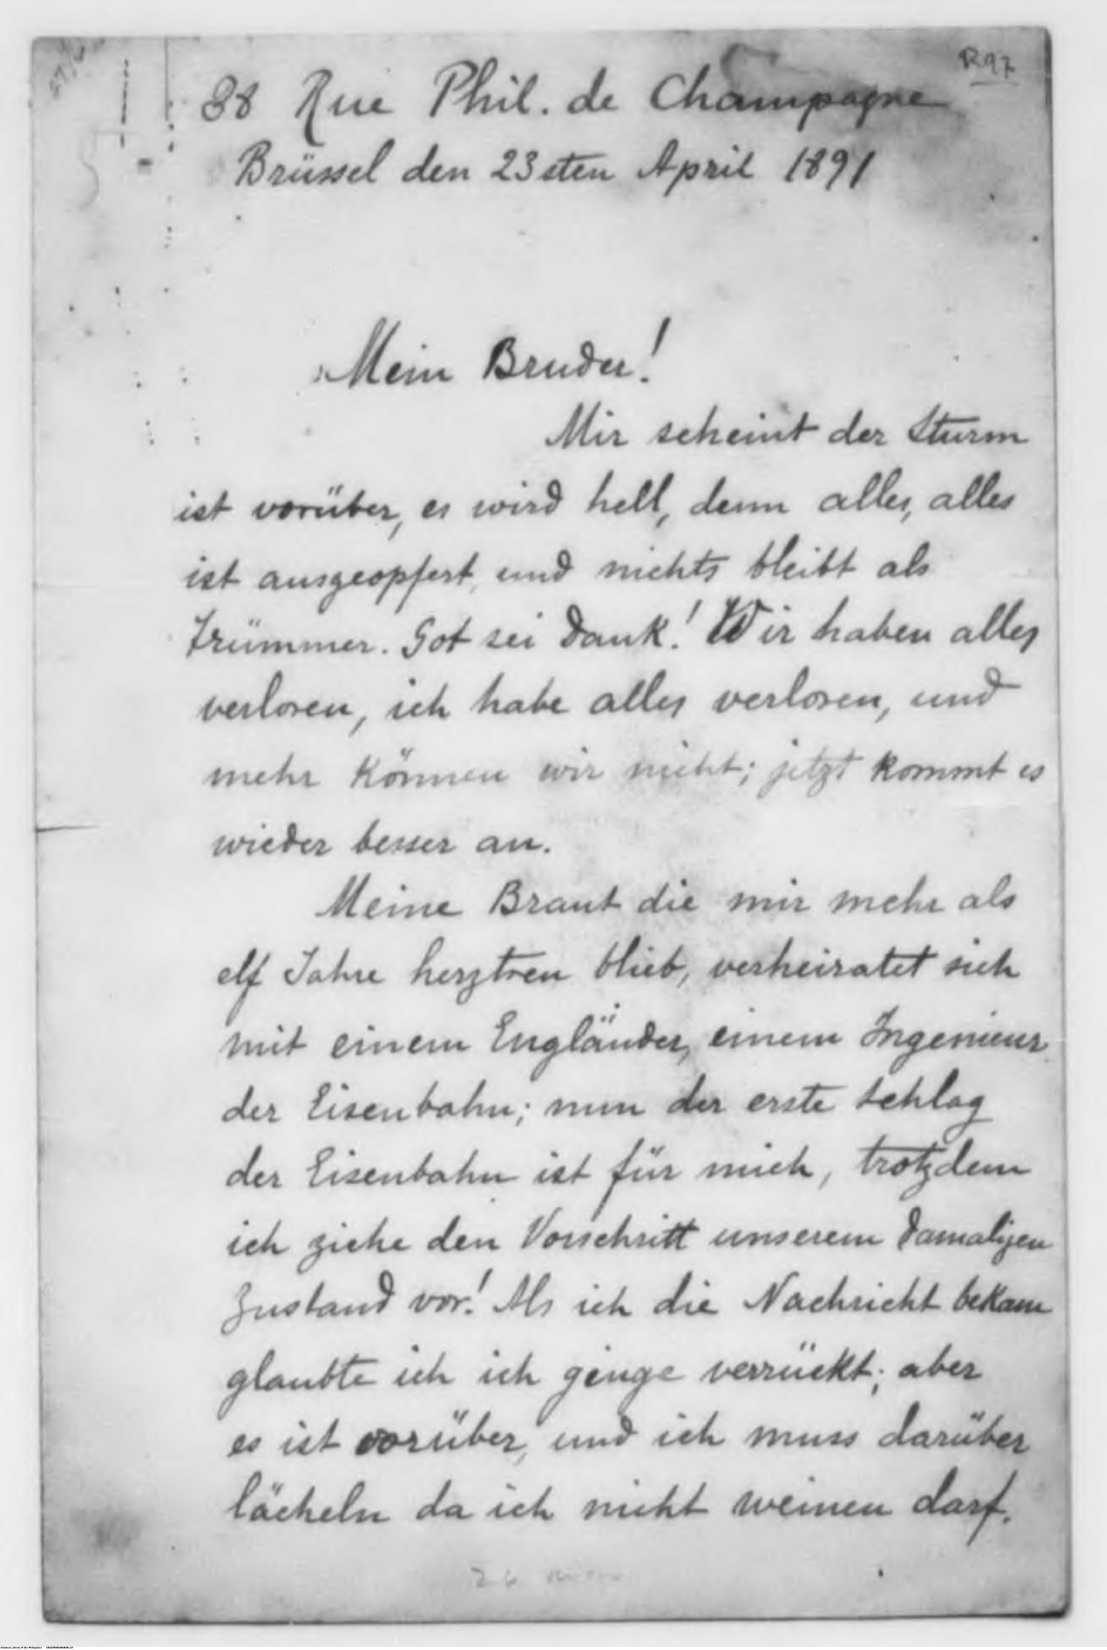 R97
38 Rue Phil. de Champagne
Brüssel den 23sten April 1891
Mein Bruder!
Mir scheint der Sturm
ist vorüber, es wird hell, denn alles, alles
ist ausgeopfert, und nichts bleibt als
Trümmer. Got sei Dank! Wir haben alles
verloren, ich habe alles verloren, und
mehr können wir nicht; jetzt kommt es
wieder besser an.
Meine Braut die mir mehr als
elf Jahre herztreu blieb, verheiratet sich
mit einem Engländer, einem Ingenieur
der Eisenbahn; nun der erste Schlag
der Eisenbahn ist für mich, trotzdem
ich ziehe den Vorschritt unserem damaligen
Zustand vor! Als ich die Nachricht bekam
glaubte ich ich ginge verrückt; aber
es ist vorüber, und ich muss darüber
lächeln da ich nicht weinen darf.